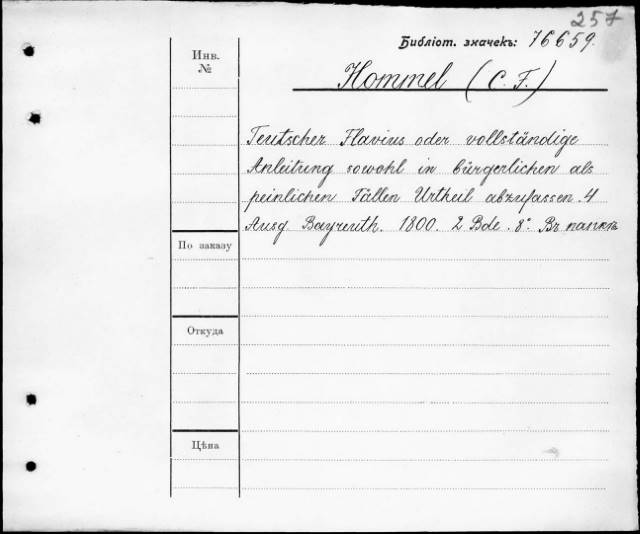 257
Библіот. значекъ: 76659.
Инв.
№
Hommel (C. F.)
Teutscher Flavius oder vollständige
Anleitung sowohl in bürgerlichen als
peinlichen Fällen Urtheil abzufassen. 4
Ausg. Bayreuth. 1800. 2 Bde. 8°. Въ папкѣ
По заказу
Откуда
Цѣна